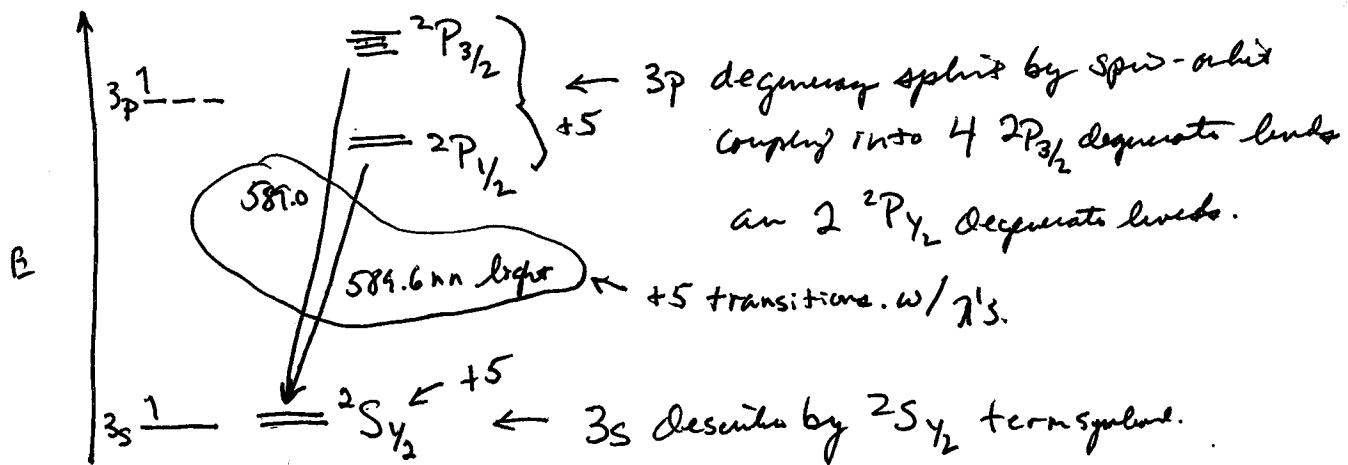 ²P₃/₂
3p 1 ← 3p degeneracy split by spin-orbit
+5
coupling into 4 2P₃/₂ degenerate levels
²P₁/₂
an 2 ²P₁/₂ degenerate levels.
589.0
E
589.6 nm light
← +5 transitions. w/ λ's.
← +5
3s 1 ²S₁/₂ ← 3s described by ²S₁/₂ term symbol.